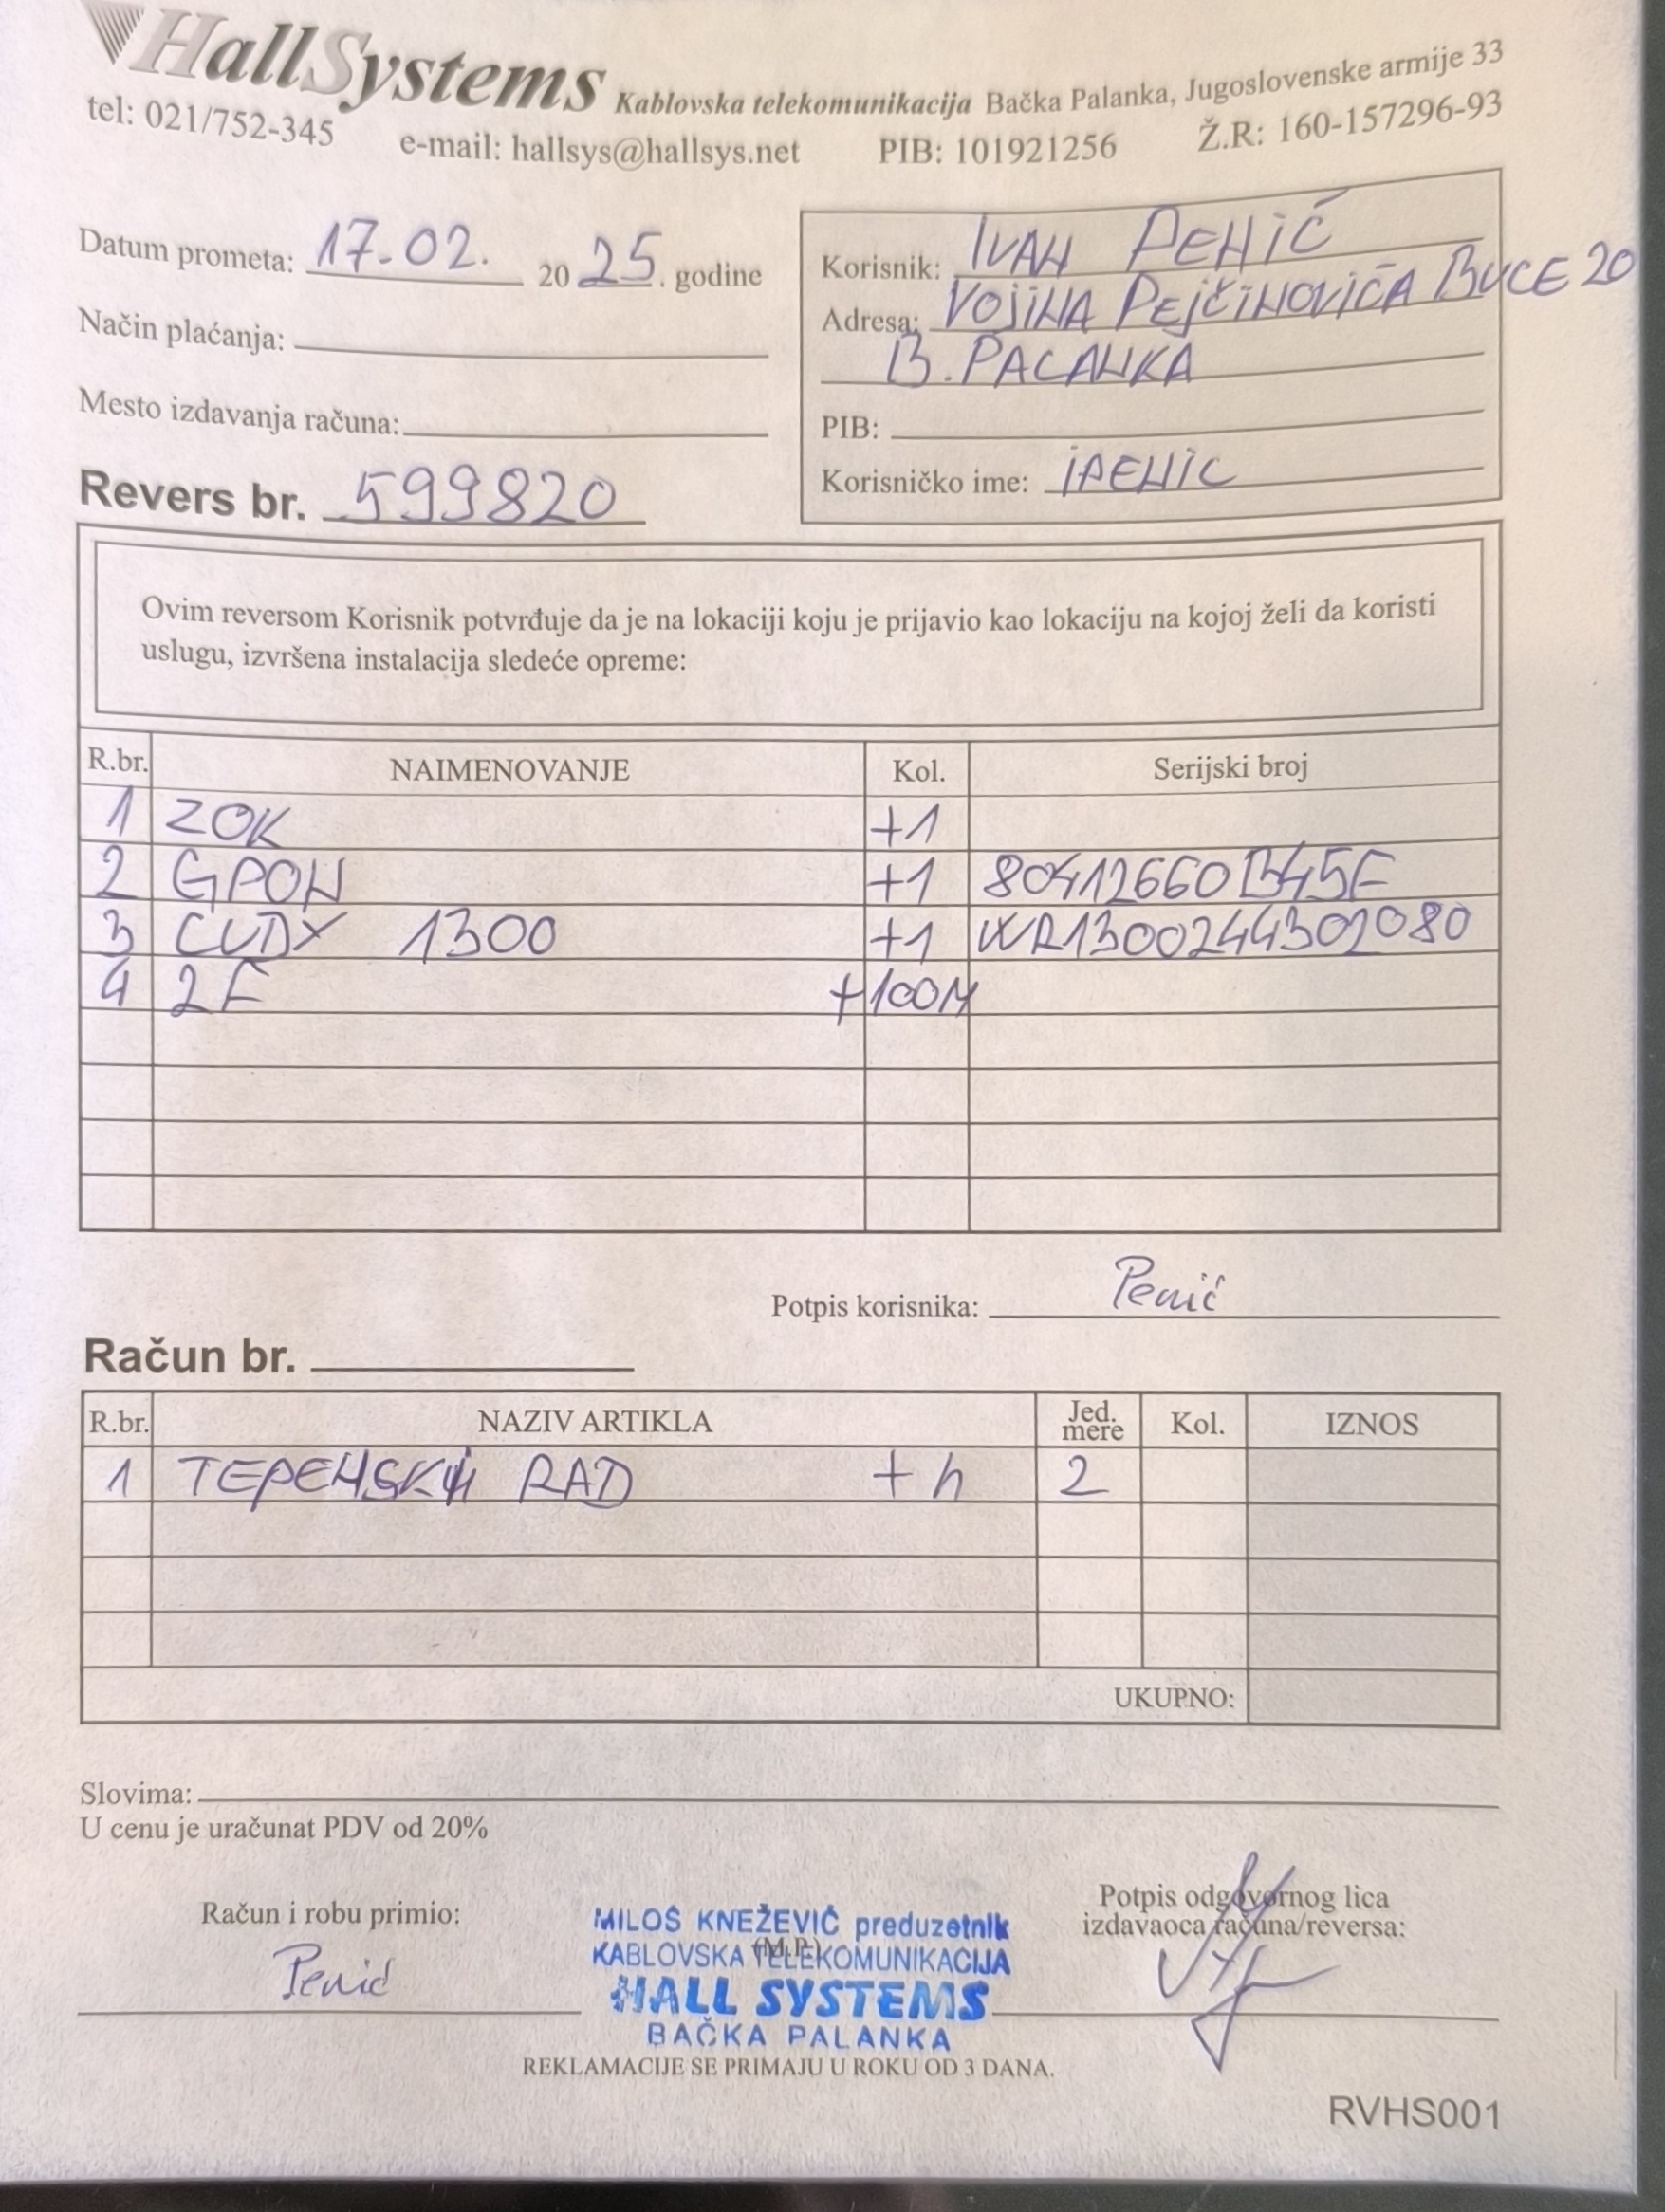 HallSystems Kablovska telekomunikacija Bačka Palanka, Jugoslovenske armije 33
tel: 021/752-345 e-mail: hallsys@hallsys.net PIB: 101921256 Ž.R: 160-157296-93
Datum prometa: 17.02. 2025. godine
Način plaćanja:
Mesto izdavanja računa:
Revers br. 599820
Korisnik: IVAN PENIĆ
Adresa: VOJINA PEJČINOVIĆA BUCE 20
B. PALANKA
PIB:
Korisničko ime: IPENIC
Ovim reversom Korisnik potvrđuje da je na lokaciji koju je prijavio kao lokaciju na kojoj želi da koristi
uslugu, izvršena instalacija sledeće opreme:
R.br. NAIMENOVANJE Kol. Serijski broj
1 ZOK +1
2 GPON +1 80412660B45F
3 CUDY 1300 +1 WR1300244302080
4 2F +100M
Potpis korisnika: Penić
Račun br.
R.br. NAZIV ARTIKLA Jed. mere Kol. IZNOS
1 RAD + h 2
UKUPNO:
Slovima:
U cenu je uračunat PDV od 20%
Račun i robu primio:
Penić
MILOŠ KNEŽEVIĆ preduzetnik
(M.P.)
KABLOVSKA TELEKOMUNIKACIJA
HALL SYSTEMS
BAČKA PALANKA
Potpis odgovornog lica
izdavaoca računa/reversa:
REKLAMACIJE SE PRIMAJU U ROKU OD 3 DANA.
RVHS001